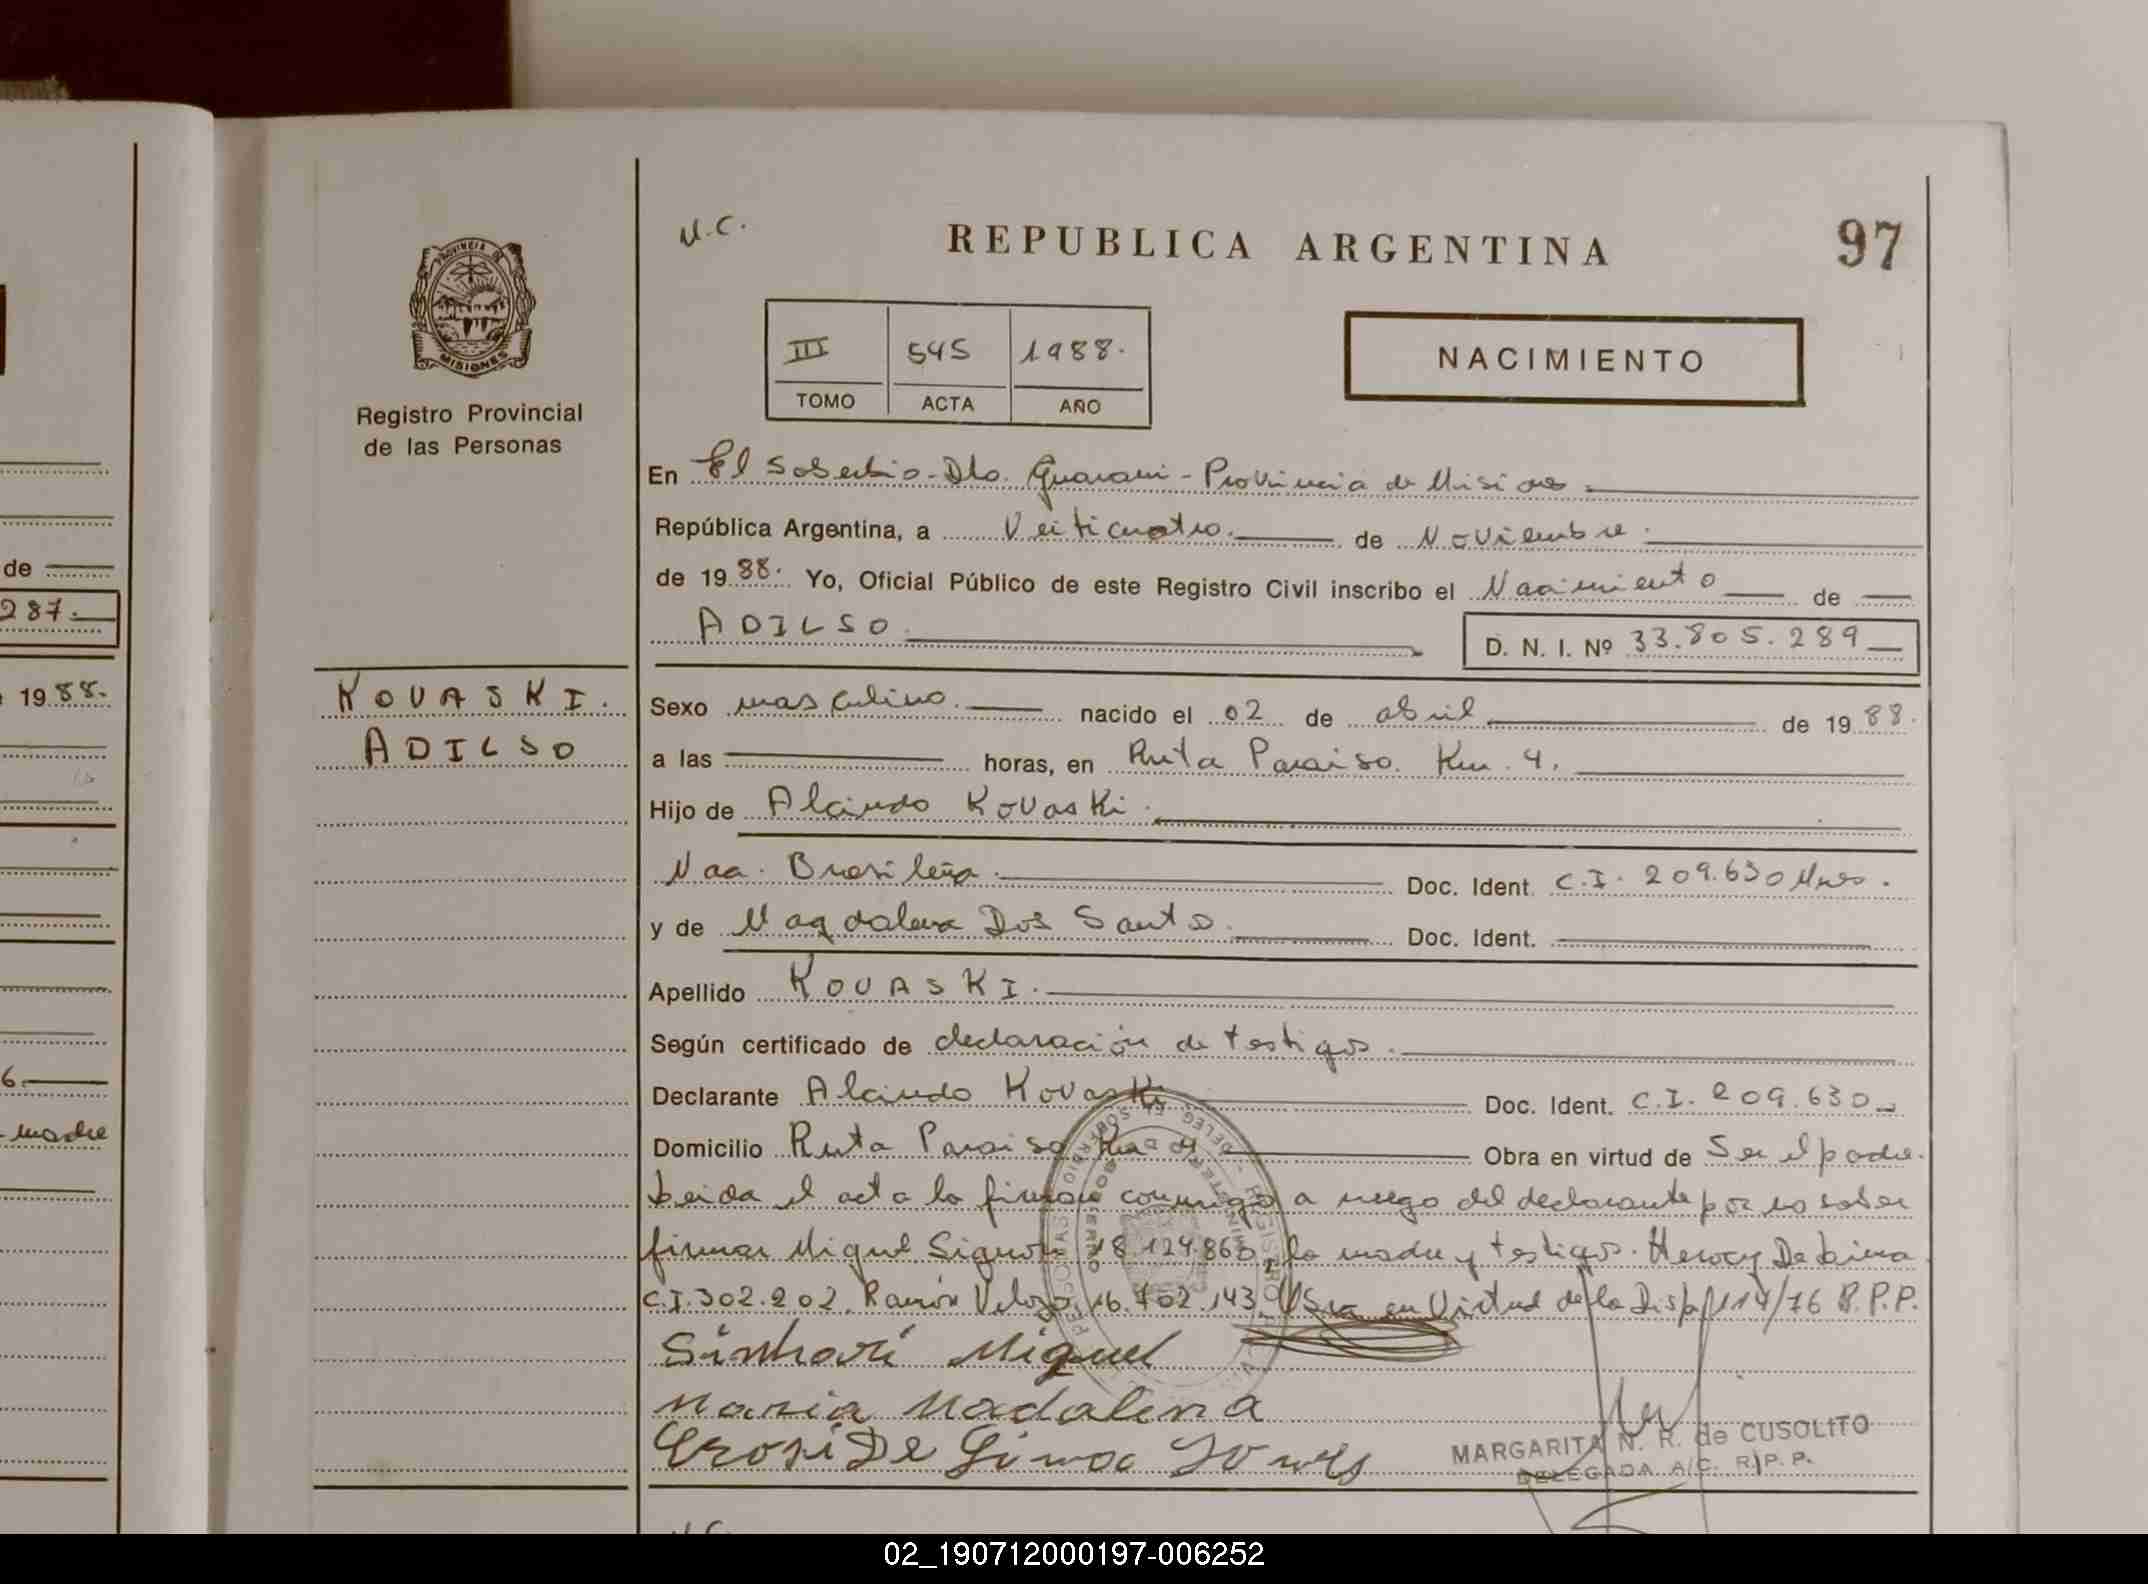 N.C.
REPUBLICA ARGENTINA
97
PROVINCIA DE
MISIONES
Registro Provincial
de las Personas
III 545 1988.
TOMO ACTA AÑO
NACIMIENTO
En El Soberbio - Dto. Guarani - Provincia de Misiones
República Argentina, a Veiticuatro. de Noviembre.
de 1988. Yo, Oficial Público de este Registro Civil inscribo el Nacimiento de
ADILSO. D. N. I. Nº 33.805.289
KOVASKI.
ADILSO
Sexo masculino. nacido el 02 de abril de 1988.
a las horas, en Ruta Paraiso. Km. 4.
Hijo de Alcindo Kovaski.
Nac. Brasileña. Doc. Ident. C.I. 209.630 Mnes.
y de Magdalena Dos Santo. Doc. Ident.
Apellido KOVASKI.
Según certificado de declaración de testigos.
Declarante Alcindo Kovaski Doc. Ident. C.I. 209.630
Domicilio Ruta Paraiso Km 4 Obra en virtud de Ser el padre.
Leida el acta la firman conmigo a ruego del declarante por no saber
firmar Miguel 18.124.860, la madre y testigos. De Lima
C.I. 302.202. Ramón Velozo. 16.702.143 en Virtud de la Disp. 114/76 R.P.P.
Miguel
Maria Madalena
De Lima
MARGARITA N. R. de CUSOLITO
DELEGADA A/C. R.P.P.
de
287.
1988.
6.
madre
02_190712000197-006252